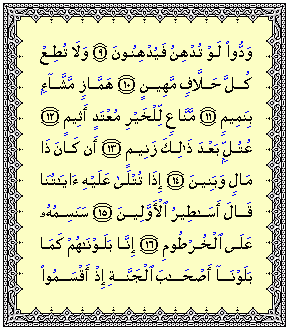 وَدُّوا۟ لَوْ تُدْهِنُ فَيُدْهِنُونَ ٩ وَلَا تُطِعْ
كُلَّ حَلَّافٍ مَّهِينٍ ١٠ هَمَّازٍ مَّشَّآءٍۭ
بِنَمِيمٍ ١١ مَّنَّاعٍ لِّلْخَيْرِ مُعْتَدٍ أَثِيمٍ ١٢
عُتُلٍّۭ بَعْدَ ذَٰلِكَ زَنِيمٍ ١٣ أَن كَانَ ذَا
مَالٍ وَبَنِينَ ١٤ إِذَا تُتْلَىٰ عَلَيْهِ ءَايَٰتُنَا
قَالَ أَسَٰطِيرُ ٱلْأَوَّلِينَ ١٥ سَنَسِمُهُۥ
عَلَى ٱلْخُرْطُومِ ١٦ إِنَّا بَلَوْنَٰهُمْ كَمَا
بَلَوْنَآ أَصْحَٰبَ ٱلْجَنَّةِ إِذْ أَقْسَمُوا۟